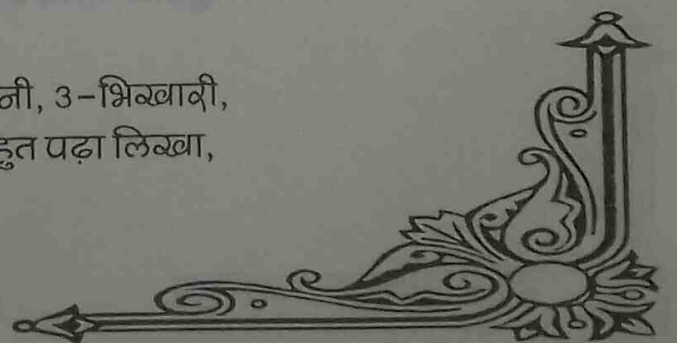 नी, ३-भिखारी,
हुत पढ़ा लिखा,